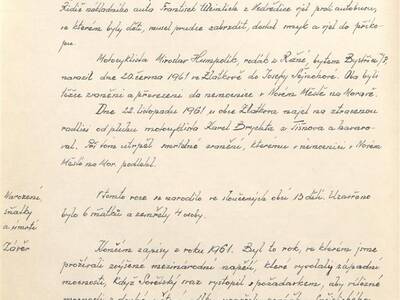 Řidič nákladního auta František Weinlich z Medrětice vjel proti autobusu,
ve kterém byly děti, musel prudce zabrzdit, dostal smyk a vjel do příko-
pu.
Motocyklista Miroslav Humpolík, rodák z Rožné, bytem Bystřice n/P.
narazil dne 20. června 1961 v Zlatkově do Josefy Sejnohové. Oba byli
těžce zraněni a převezeni do nemocnice v Novém Městě na Moravě.
Dne 22. listopadu 1961 u obce Zlatkova najel na ztracenou
radlici od pluhu motocyklista Karel Brychta z Tišnova a havaro-
val. Při tom utrpěl smrtelné zranění, kterému v nemocnici v Novém
Městě na Mor. podlehl.
Narození,
sňatky
a úmrtí
V tomto roce se narodilo ve sloučených obcí 13 dětí. Uzavřeno
bylo 6 sňatků a zemřely 4 osoby.
Závěr
Končím zápisy z roku 1961. Byl to rok, ve kterém jsme
prožívali zvýšené mezinárodní napětí, které vyvolaly západní
mocnosti, když Sovětský svaz vystoupil s požadavkem, aby vítězné
mocnosti z druhé světové